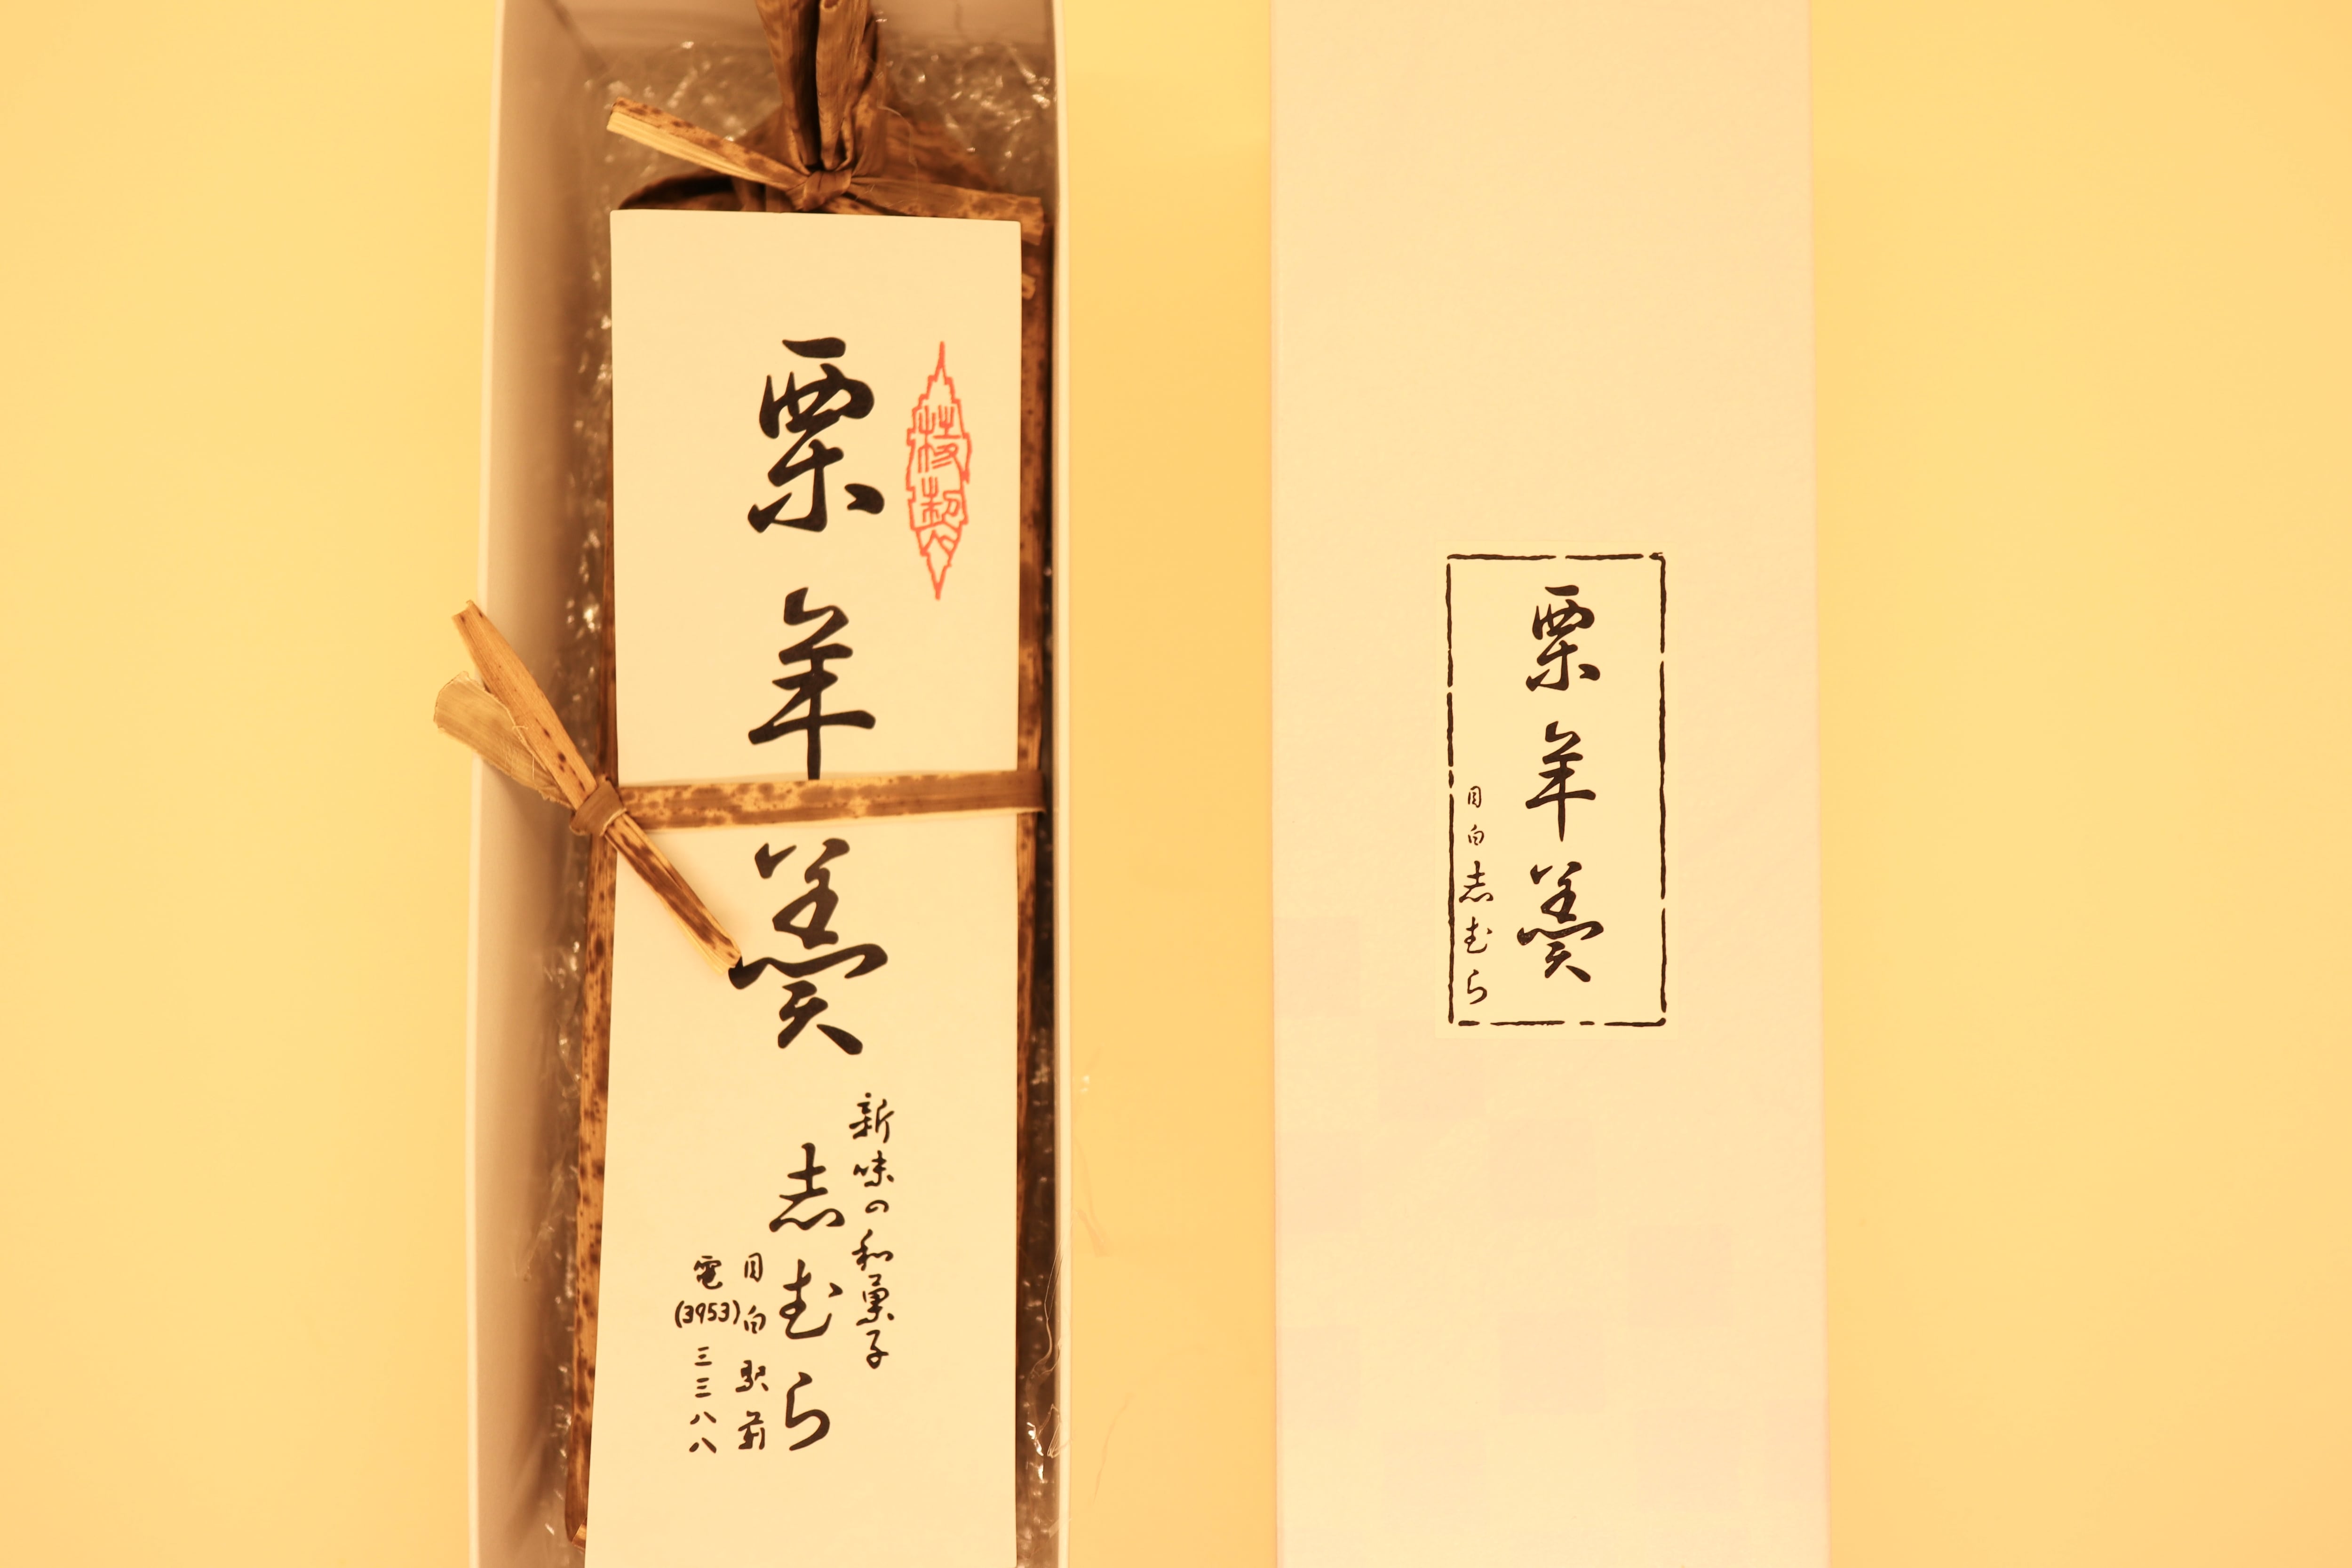 栗羊羹
枝製
新味の和菓子
志むら
目白駅前
電(3953)三三八八
栗羊羹
目白志むら